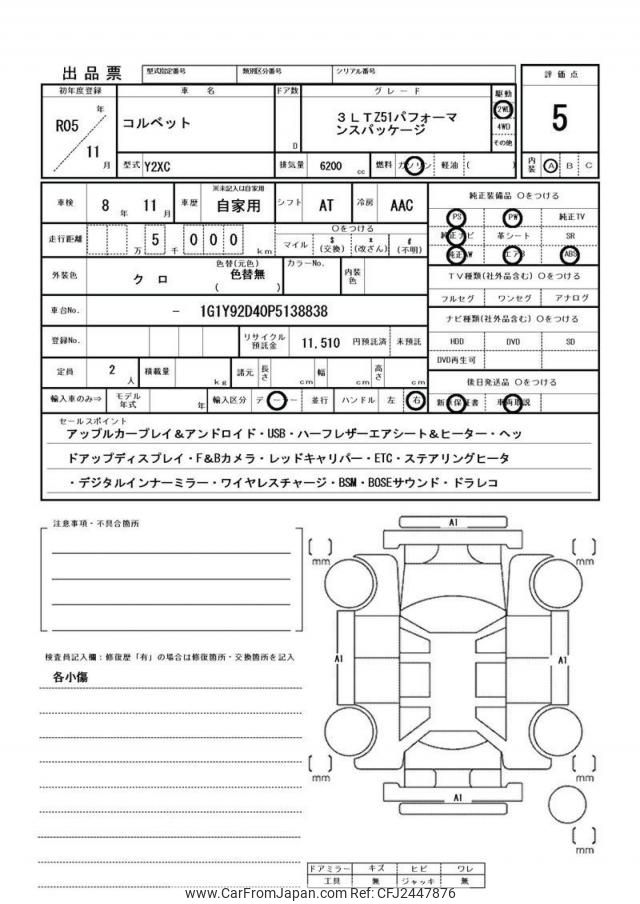 出品票 型式指定番号 類別区分番号 シリアル番号
評価点
5
初年度登録 車名 ドア数 グレード 駆動
R05 年 11 月
コルベット
D
3LTZ51パフォーマ
ンスパッケージ
2WD
4WD
その他
型式 Y2XC 排気量 6200 cc 燃料 ガソリン 軽油 ( )
内装 A B C
車検 8 年 11 月 車歴 ※未記入は自家用 自家用 シフト AT 冷房 AAC
走行距離 万 5 千 0 0 0 km
○をつける
マイル $ (交換) x (改ざん) # (不明)
外装色 クロ 色替(元色) 色替無 ( ) カラーNo. 内装色
車台No. - 1G1Y92D40P5138838
登録No. リサイクル預託金 11,510 円預託済 未預託
定員 2 人 積載量 kg 諸元 長さ cm 幅 cm 高さ cm
輸入車のみ⇒ モデル年式 年 輸入区分 ディーラー 並行 ハンドル 左 右
純正装備品 ○をつける
PS PW 純正TV
純正ナビ 革シート SR
純正AW エアB ABS
TV種類(社外品含む) ○をつける
フルセグ ワンセグ アナログ
ナビ種類(社外品含む) ○をつける
HDD DVD SD
DVD再生可
後日発送品 ○をつける
新車保証書 車両取説
セールスポイント
アップルカープレイ&アンドロイド・USB・ハーフレザーエアシート&ヒーター・ヘッ
ドアップディスプレイ・F&Bカメラ・レッドキャリパー・ETC・ステアリングヒータ
・デジタルインナーミラー・ワイヤレスチャージ・BSM・BOSEサウンド・ドラレコ
注意事項・不具合箇所
検査員記入欄：修復歴「有」の場合は修復箇所・交換箇所を記入
各小傷
A1
[ ] mm
[ ] mm
A1
A1
[ ] mm
[ ] mm
A1
[ ] mm
ドアミラー キズ ヒビ ワレ
工具 無 ジャッキ 無
www.CarFromJapan.com Ref: CFJ2447876